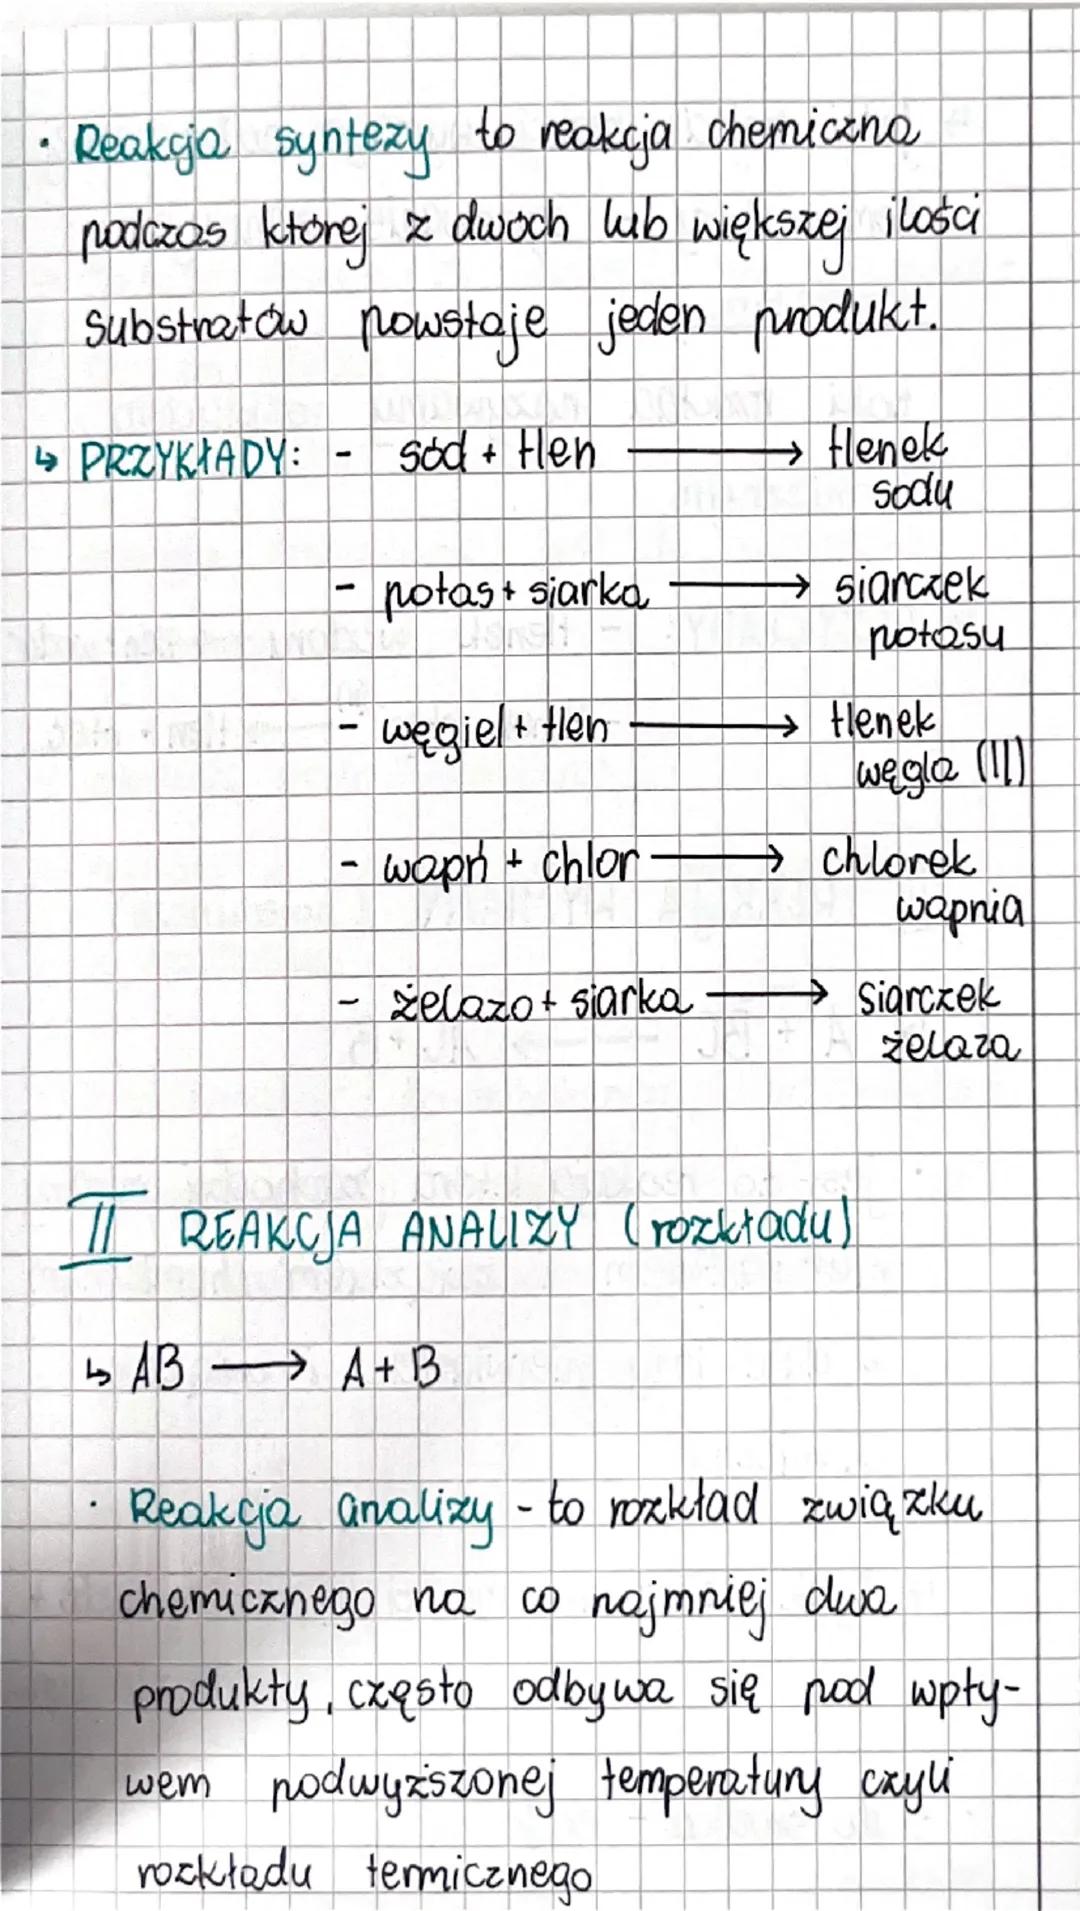 · Reakcja syntezy to reakcja chemiczna
podczas której z dwóch lub większej ilości
substratów powstaje jeden produkt.
↳ PRZYKŁADY: - sód + tlen → tlenek
sodu
- potas + siarka → siarczek
potasu
- węgiel + tlen → tlenek
węgla (II)
- wapń + chlor → chlorek
wapnia
- żelazo + siarka → siarczek
żelaza
II REAKCJA ANALIZY (rozkładu)
↳ AB → A + B
· Reakcja analizy - to rozkład związku
chemicznego na co najmniej dwa
produkty, często odbywa się pod wpły-
wem podwyższonej temperatury czyli
rozkładu termicznego